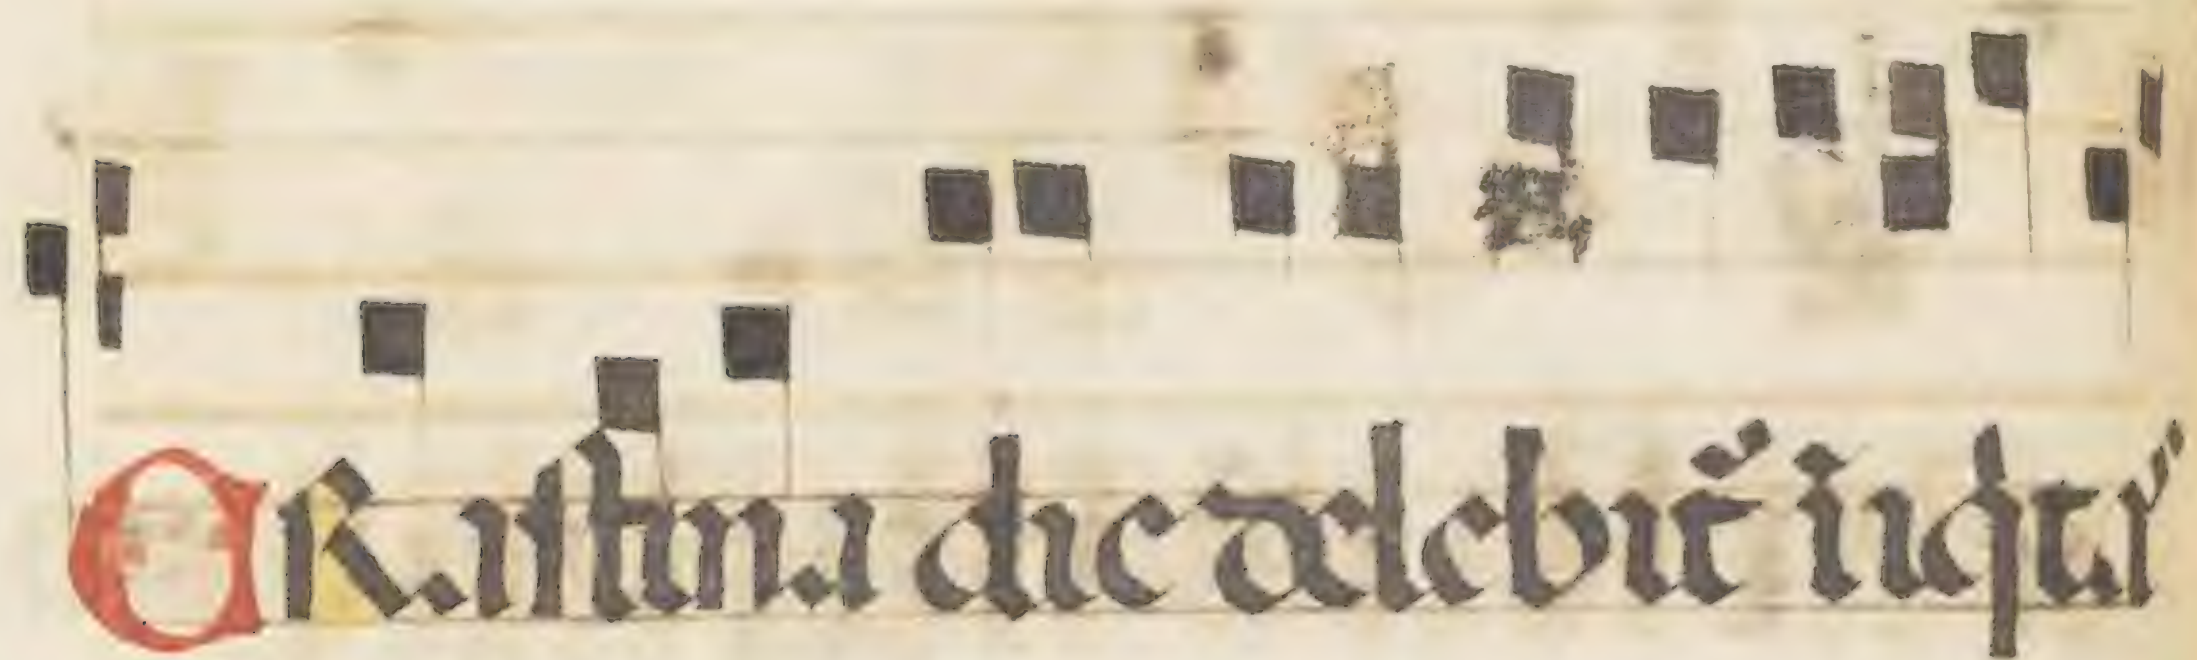 CRastina die delebit̃ iniqti